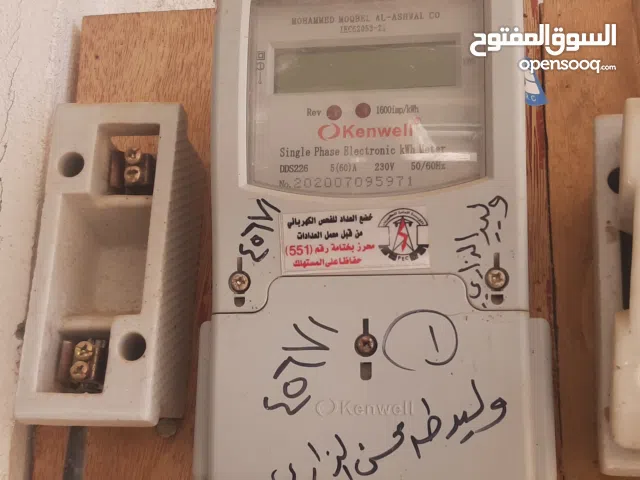 السوق المفتوح
opensooq.com
MOHAMMED MOQBEL AL-ASHWAL CO
Rev 1600imp/kWh
Kenwell
Single Phase Electronic kWh Meter
DDS226 5(60)A 230V 50/60Hz
No. 202007095971
خضع العداد للفحص الكهربائي
من قبل معمل العدادات
محرز بختامة رقم (551)
حفاظا على المستهلك
٤٥٦٧١
وليد الزاري
٤٥٦٧١
١
Kenwell
وليد طه محسن الزاري